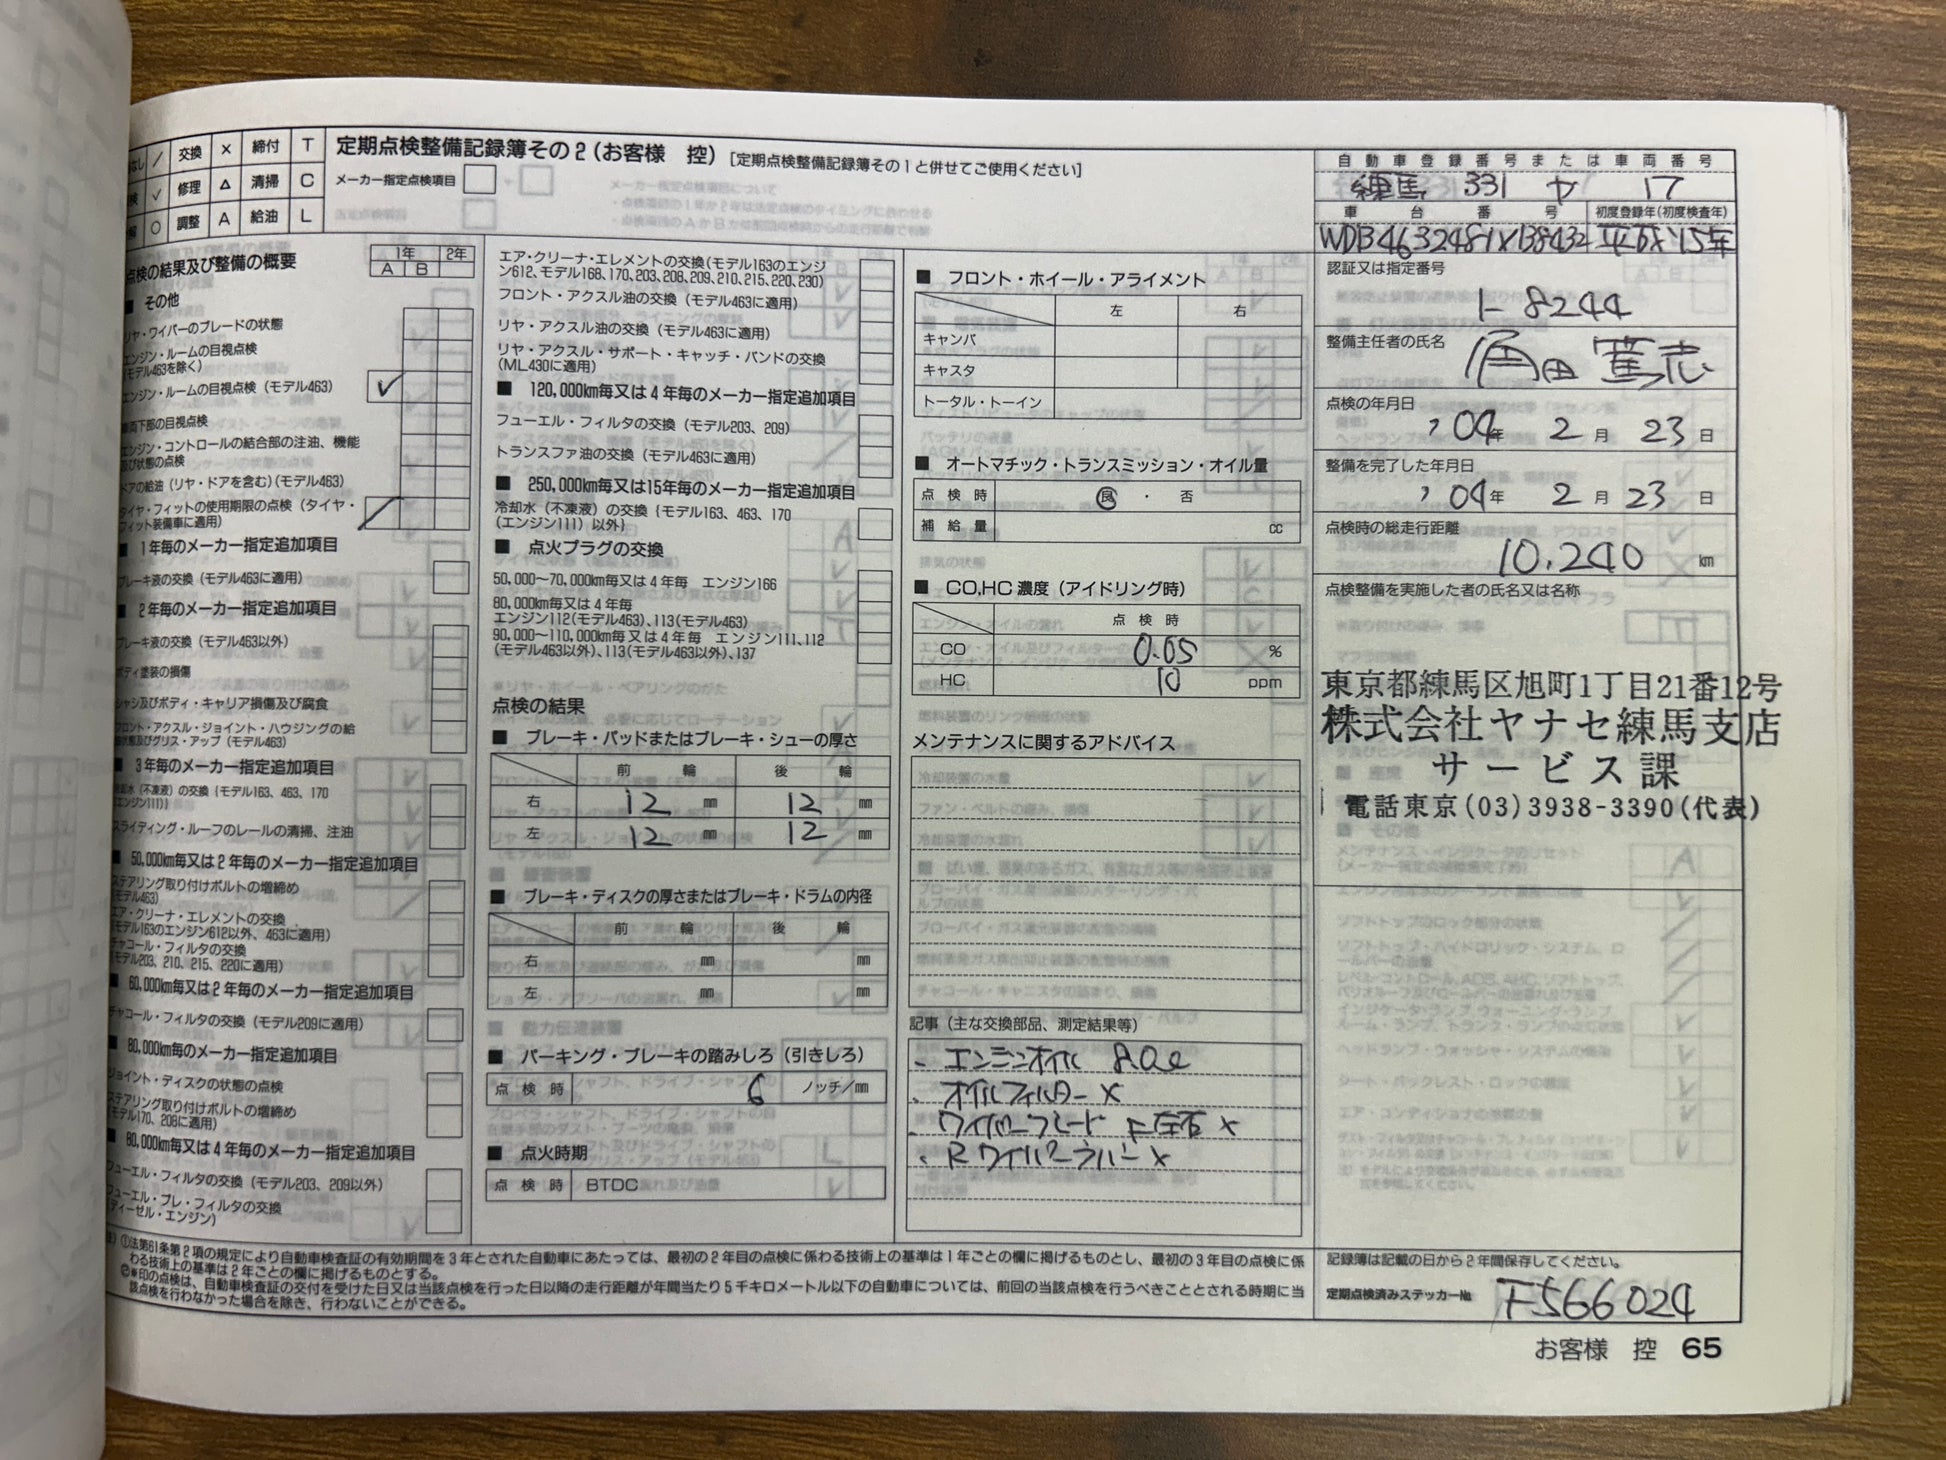 なし / 交換 × 締付 T
検 ✓ 修理 △ 清掃 C
○ 調整 A 給油 L
定期点検整備記録簿その2(お客様 控)[定期点検整備記録簿その1と併せてご使用ください]
メーカー指定点検項目
点検の結果及び整備の概要
1年 2年
A B
■ その他
リヤ・ワイパーのブレードの状態
エンジン・ルームの目視点検
(モデル463を除く)
エンジン・ルームの目視点検(モデル463) ✓
車両下部の目視点検
エンジン・コントロールの結合部の注油、機能
及び状態の点検
ドアの給油(リヤ・ドアを含む)(モデル463)
タイヤ・フィットの使用期限の点検(タイヤ・
フィット装備車に適用) /
■ 1年毎のメーカー指定追加項目
ブレーキ液の交換(モデル463に適用)
■ 2年毎のメーカー指定追加項目
ブレーキ液の交換(モデル463以外)
ボディ塗装の損傷
シャシ及びボディ・キャリア損傷及び腐食
フロント・アクスル・ジョイント・ハウジングの給
脂状態及びグリス・アップ(モデル463)
■ 3年毎のメーカー指定追加項目
冷却水(不凍液)の交換{モデル163、463、170
(エンジン111)}
スライディング・ルーフのレールの清掃、注油
■ 50,000km毎又は2年毎のメーカー指定追加項目
ステアリング取り付けボルトの増締め
(モデル463)
エア・クリーナ・エレメントの交換
(モデル163のエンジン612以外、463に適用)
チャコール・フィルタの交換
(モデル203、210、215、220に適用)
■ 60,000km毎又は2年毎のメーカー指定追加項目
チャコール・フィルタの交換(モデル209に適用)
■ 80,000km毎のメーカー指定追加項目
ジョイント・ディスクの状態の点検
ステアリング取り付けボルトの増締め
(モデル170、208に適用)
■ 80,000km毎又は4年毎のメーカー指定追加項目
フューエル・フィルタの交換(モデル203、209以外)
フューエル・プレ・フィルタの交換
(ディーゼル・エンジン)
エア・クリーナ・エレメントの交換(モデル163のエンジ
ン612、モデル168、170、203、208、209、210、215、220、230)
フロント・アクスル油の交換(モデル463に適用)
リヤ・アクスル油の交換(モデル463に適用)
リヤ・アクスル・サポート・キャッチ・バンドの交換
(ML430に適用)
■ 120,000km毎又は4年毎のメーカー指定追加項目
フューエル・フィルタの交換(モデル203、209)
トランスファ油の交換(モデル463に適用)
■ 250,000km毎又は15年毎のメーカー指定追加項目
冷却水(不凍液)の交換{モデル163、463、170
(エンジン111)以外}
■ 点火プラグの交換
50,000〜70,000km毎又は4年毎 エンジン166
80,000km毎又は4年毎
エンジン112(モデル463)、113(モデル463)
90,000〜110,000km毎又は4年毎 エンジン111、112
(モデル463以外)、113(モデル463以外)、137
点検の結果
■ ブレーキ・パッドまたはブレーキ・シューの厚さ
前 輪 後 輪
右 12 mm 12 mm
左 12 mm 12 mm
■ ブレーキ・ディスクの厚さまたはブレーキ・ドラムの内径
前 輪 後 輪
右 mm mm
左 mm mm
■ パーキング・ブレーキの踏みしろ(引きしろ)
点検時 6 ノッチ/mm
■ 点火時期
点検時 BTDC
■ フロント・ホイール・アライメント
左 右
キャンバ
キャスタ
トータル・トーイン
■ オートマチック・トランスミッション・オイル量
点検時 良 ・ 否
補給量 cc
■ CO,HC濃度(アイドリング時)
点検時
CO 0.05 %
HC 10 ppm
メンテナンスに関するアドバイス
記事(主な交換部品、測定結果等)
・エンジンオイル 8.0ℓ
・オイルフィルター ×
・ワイパーブレード F左右 ×
・Rワイパーラバー ×
自動車登録番号または車両番号
練馬 331 ヤ 17
車台番号 初度登録年(初度検査年)
WDB4632481X138432 平成15年
認証又は指定番号
1-8244
整備主任者の氏名
角田 篤志
点検の年月日
'04年 2月 23日
整備を完了した年月日
'04年 2月 23日
点検時の総走行距離
10,240 km
点検整備を実施した者の氏名又は名称
東京都練馬区旭町1丁目21番12号
株式会社ヤナセ練馬支店
サービス課
電話東京(03)3938-3390(代表)
注)①法第61条第2項の規定により自動車検査証の有効期間を3年とされた自動車にあたっては、最初の2年目の点検に係わる技術上の基準は1年ごとの欄に掲げるものとし、最初の3年目の点検に係
わる技術上の基準は2年ごとの欄に掲げるものとする。
②※印の点検は、自動車検査証の交付を受けた日又は当該点検を行った日以降の走行距離が年間当たり5千キロメートル以下の自動車については、前回の当該点検を行うべきこととされる時期に当
該点検を行わなかった場合を除き、行わないことができる。
記録簿は記載の日から2年間保存してください。
定期点検済みステッカー№ F566024
お客様 控 65